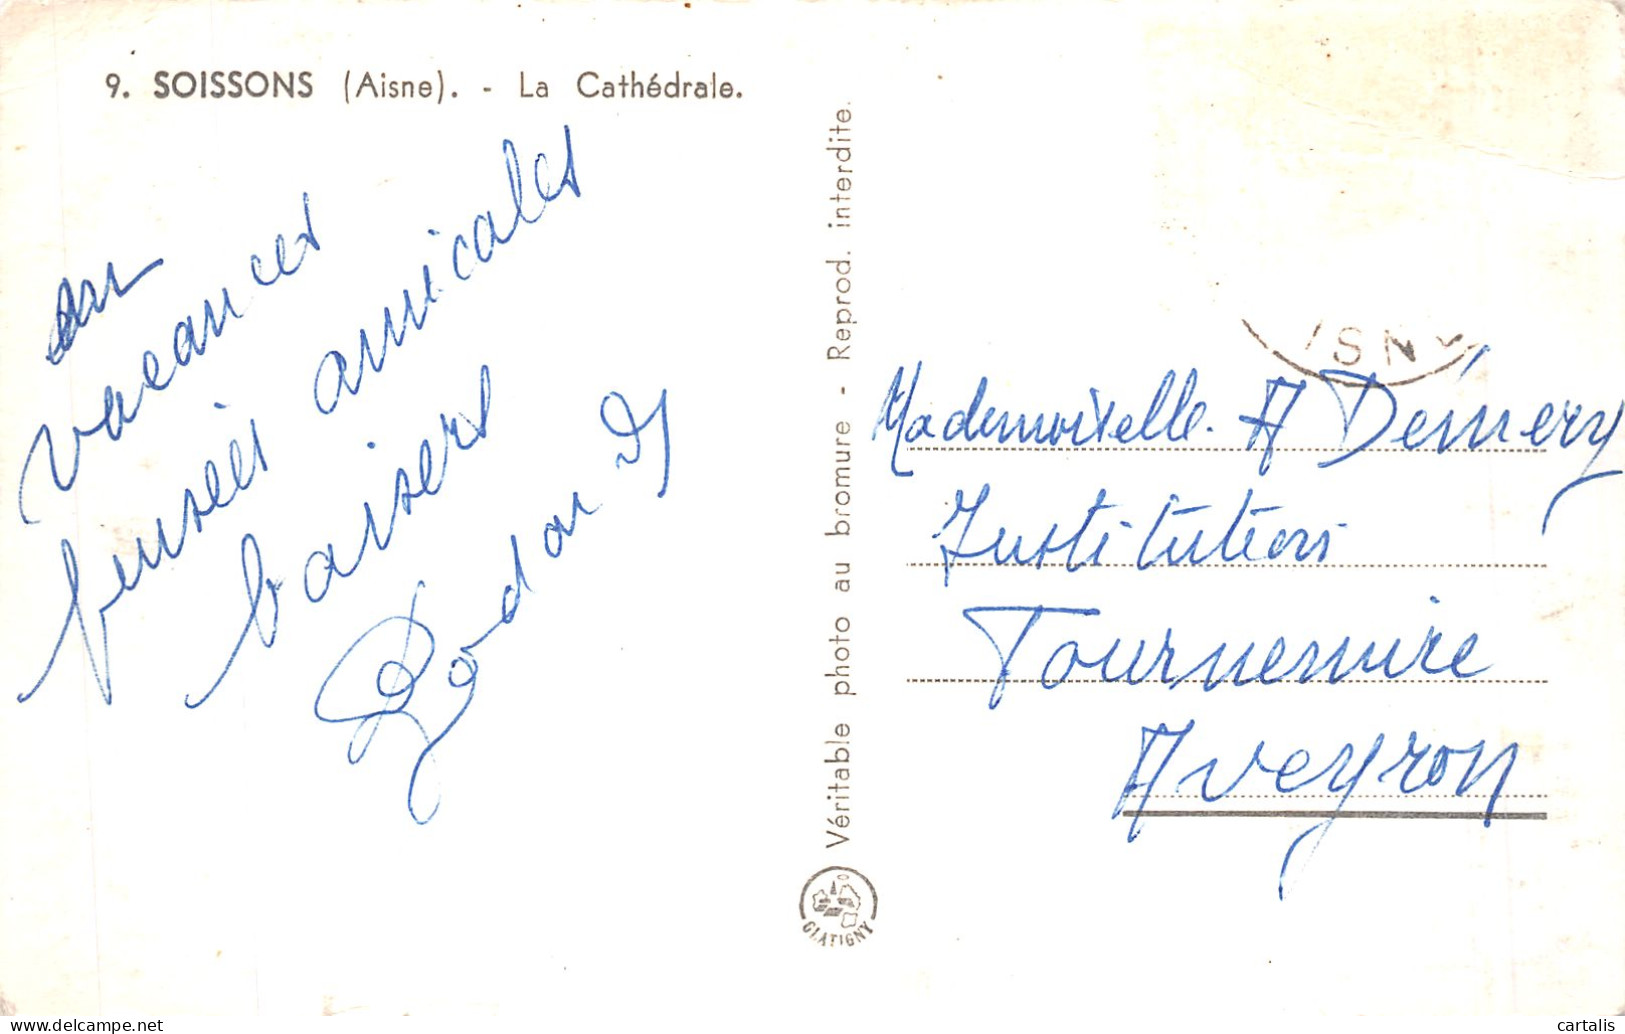 9. SOISSONS (Aisne). - La Cathédrale.
en
vacances
pensées amicales
baisers
Véritable photo au bromure - Reprod. interdite.
GLATIGNY
Mademoiselle. A Démery
Institution
Tournemire
Aveyron
delcampe.net
cartalis